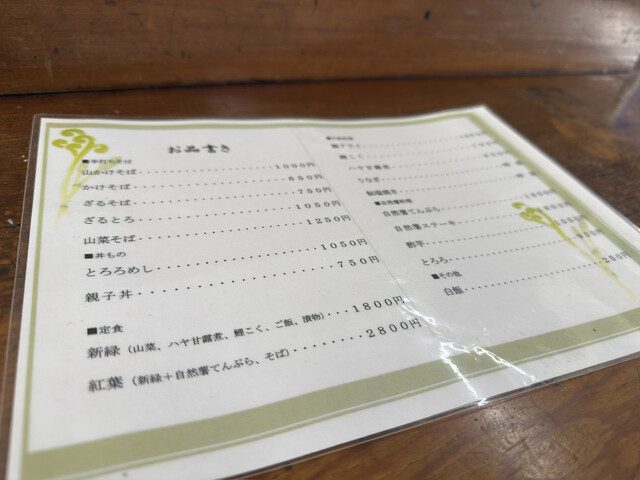 お品書き
■手打ちそば
山かけそば・・・・・・・・・・・・・1000円
かけそば・・・・・・・・・・・・・・650円
ざるそば・・・・・・・・・・・・・・750円
ざるとろ・・・・・・・・・・・・・1050円
山菜そば・・・・・・・・・・・・・1250円
■丼もの
とろろめし・・・・・・・・・・・・1050円
親子丼・・・・・・・・・・・・・・・750円
■定食
新緑（山菜、ハヤ甘露煮、鯉こく、ご飯、漬物）・・・1800円
紅葉（新緑＋自然薯てんぷら、そば）・・・・・・・・2800円
鯉こく
ハヤ甘露煮
うなぎ
■自然薯料理
自然薯てんぷら
自然薯ステーキ
酢芋
とろろ
■その他
白飯・・・・・・・・・・・250円